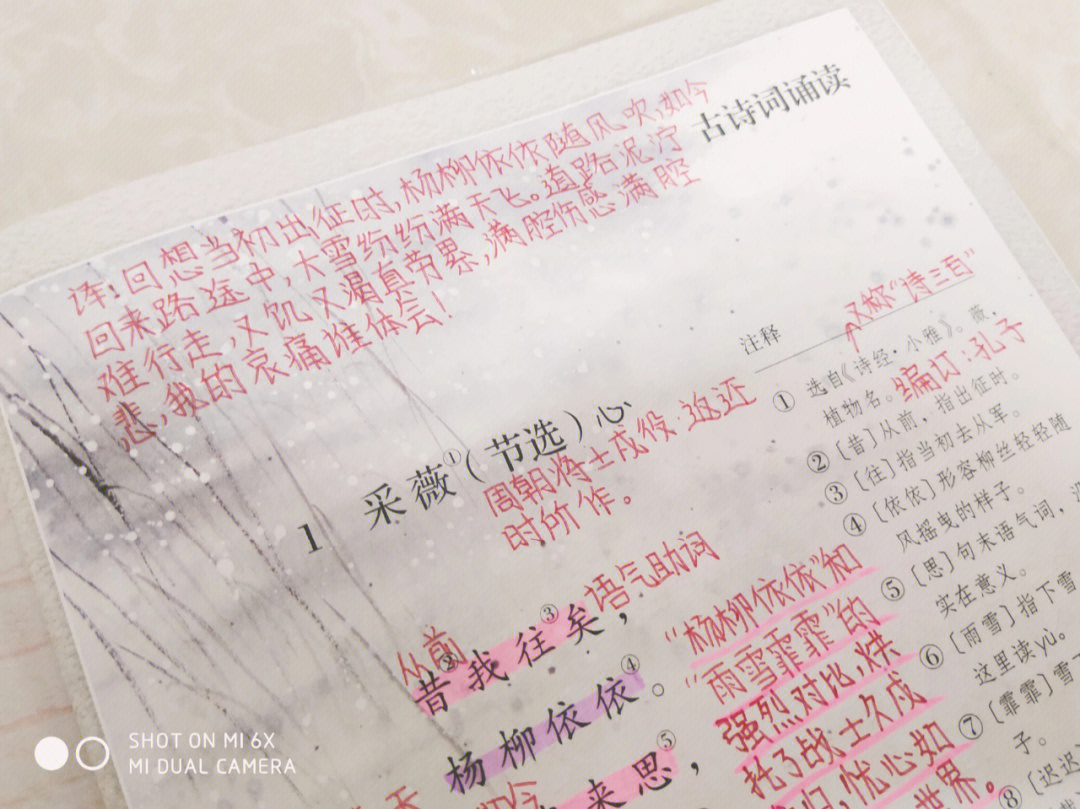 古诗词诵读
译:回想当初出征时,杨柳依依随风吹,如今
回来路途中,大雪纷纷满天飞。道路泥泞
难行走,又饥又渴真劳累,满腔伤感满腔
悲,我的哀痛谁体会!
1 采薇①(节选)心
周朝将士戍役 迨还
时所作。
从前
语气助词
昔②我往③矣,
杨柳依依④。
来思⑤,
“杨柳依依”和
“雨雪霏霏”的
强烈对比,烘
托了战士久戍
忧心如
世界。
又称“诗三百”
注释
① 选自《诗经·小雅》。薇,
植物名。编订:孔子
② [昔]从前,指出征时。
③ [往]指当初去从军。
④ [依依]形容柳丝轻轻随
风摇曳的样子。
⑤ [思]句末语气词,没
实在意义。
⑥ [雨雪]指下雪
这里读yù。
⑦ [霏霏]雪下
子。
⑧ [迟迟]
SHOT ON MI 6X
MI DUAL CAMERA